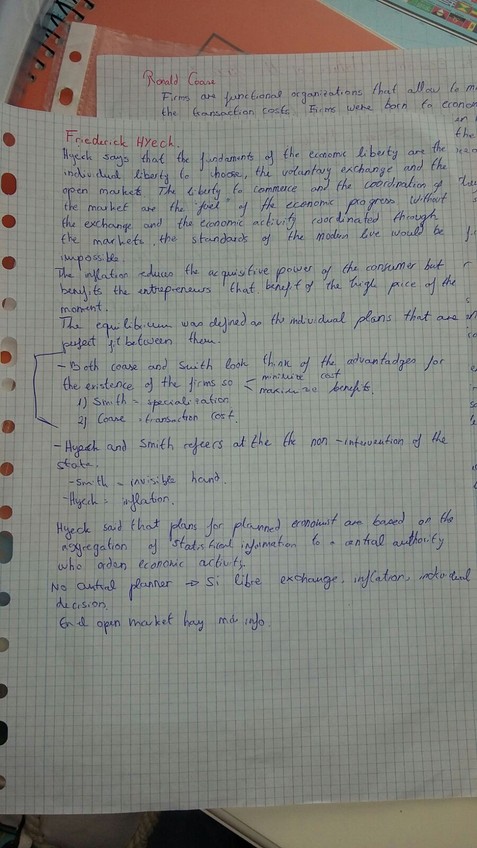 Ronald Coase
Firms are functional organizations that allow to
the transaction costs. Firms were born to
Friederick Hyech.
Hyech says that the fundaments of the economic liberty are the
individual liberty to choose, the voluntary exchange and the
open market. The liberty to commerce and the coordination of
the market are the "fuel" of the economic progress. Without
the exchange and the economic activity coordinated through
the markets, the standards of the modern live would be
impossible.
The inflation reduces the acquisitive power of the consumer but
benefits the entrepreneurs that benefit of the high price of the
moment.
The equilibrium was defined as the individual plans that are in
perfect fit between them.
- Both coase and Smith look think of the advantadges for
the existence of the firms so minimize cost
maximize benefits.
1) Smith = specialization
2) Coase = transaction cost.
- Hyech and Smith refeers at the the non-intervention of the
state.
- Smith = invisible hand.
- Hyech = inflation.
Hyeck said that plans for planned economist are based on the
aggregation of statistical information to a central authority
who orders economic activity.
No central planner → Si libre exchange, inflation, individual
decision.
En el open market hay más info.